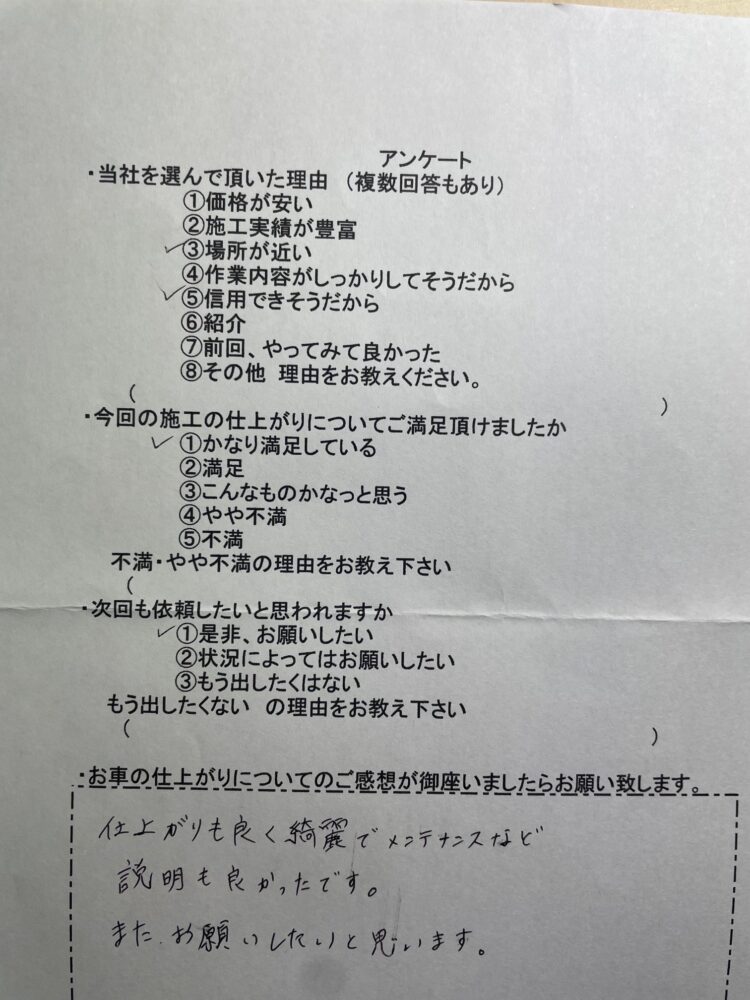 アンケート
・当社を選んで頂いた理由 （複数回答もあり）
①価格が安い
②施工実績が豊富
✓③場所が近い
④作業内容がしっかりしてそうだから
✓⑤信用できそうだから
⑥紹介
⑦前回、やってみて良かった
⑧その他 理由をお教えください。
（ ）
・今回の施工の仕上がりについてご満足頂けましたか
✓①かなり満足している
②満足
③こんなものかなっと思う
④やや不満
⑤不満
不満・やや不満の理由をお教え下さい
（
・次回も依頼したいと思われますか
✓①是非、お願いしたい
②状況によってはお願いしたい
③もう出したくはない
もう出したくない の理由をお教え下さい
（ ）
・お車の仕上がりについてのご感想が御座いましたらお願い致します。
仕上がりも良く綺麗でメンテナンスなど
説明も良かったです。
また、お願いしたいと思います。